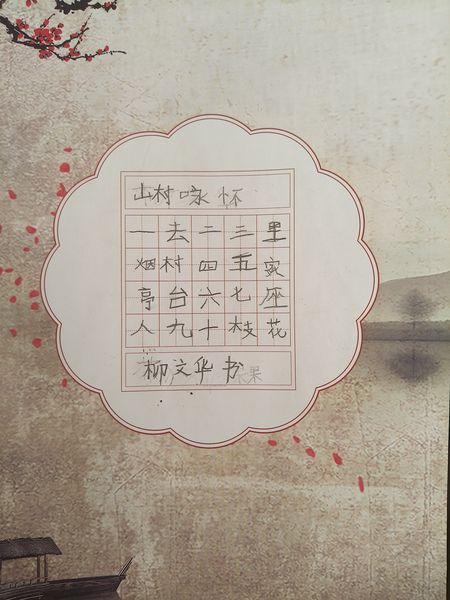 山村咏怀
一去二三里
烟村四五家
亭台六七座
人九十枝花
柳文华书